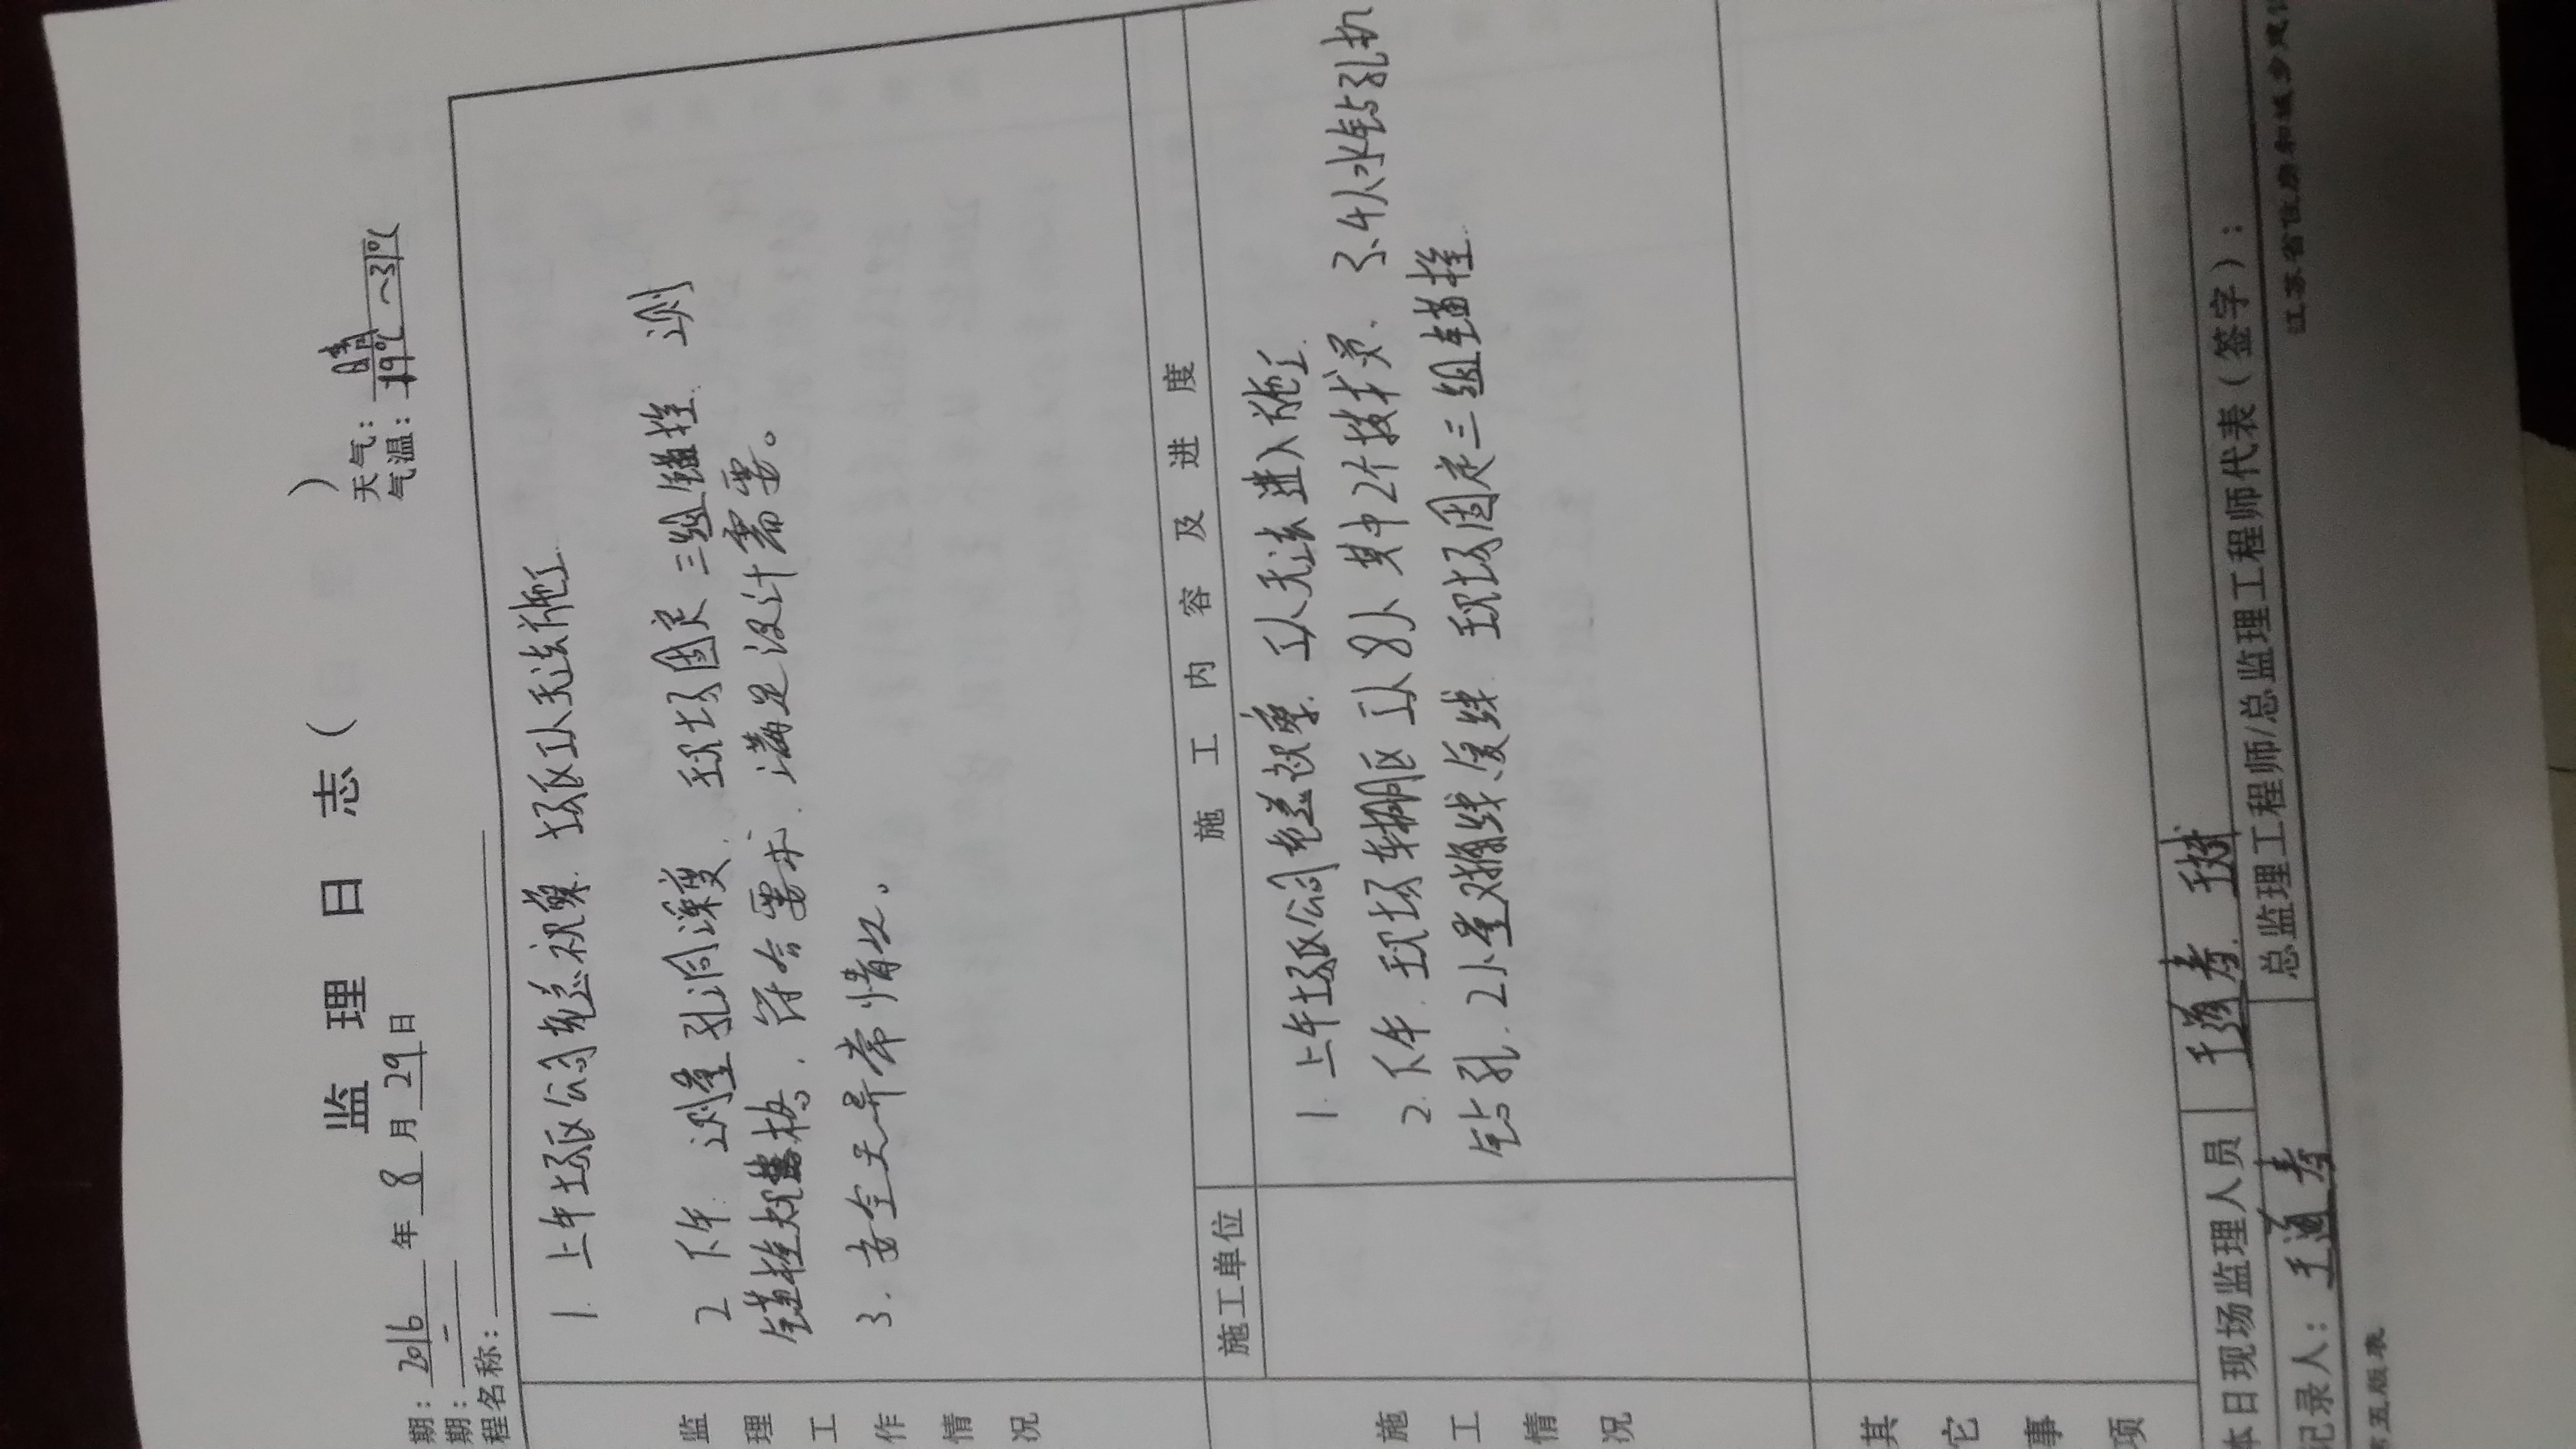 监理日志（ ）
期：2016年8月29日 天气：晴
期：一 气温：19℃～31℃
程名称：
监理工作情况
1. 上午场区公司老总视察. 场区工人无法施工
2 下午. 测量孔洞深度. 现场固定三组锚栓. 测
锚栓规格. 符合要求. 满足设计需要。
3. 安全无异常情况。
施工单位 施工内容及进度
施工情况
1. 上午场区公司老总视察. 工人无法进入施工
2. 下午. 现场车棚区工人8人其中2个技术员. 3、4人水钻孔机
钻孔. 2人量线复线 现场固定三组锚栓
其它事项
本日现场监理人员
记录人： 总监理工程师/总监理工程师代表（签字）：
第五版表 江苏省住房和城乡建